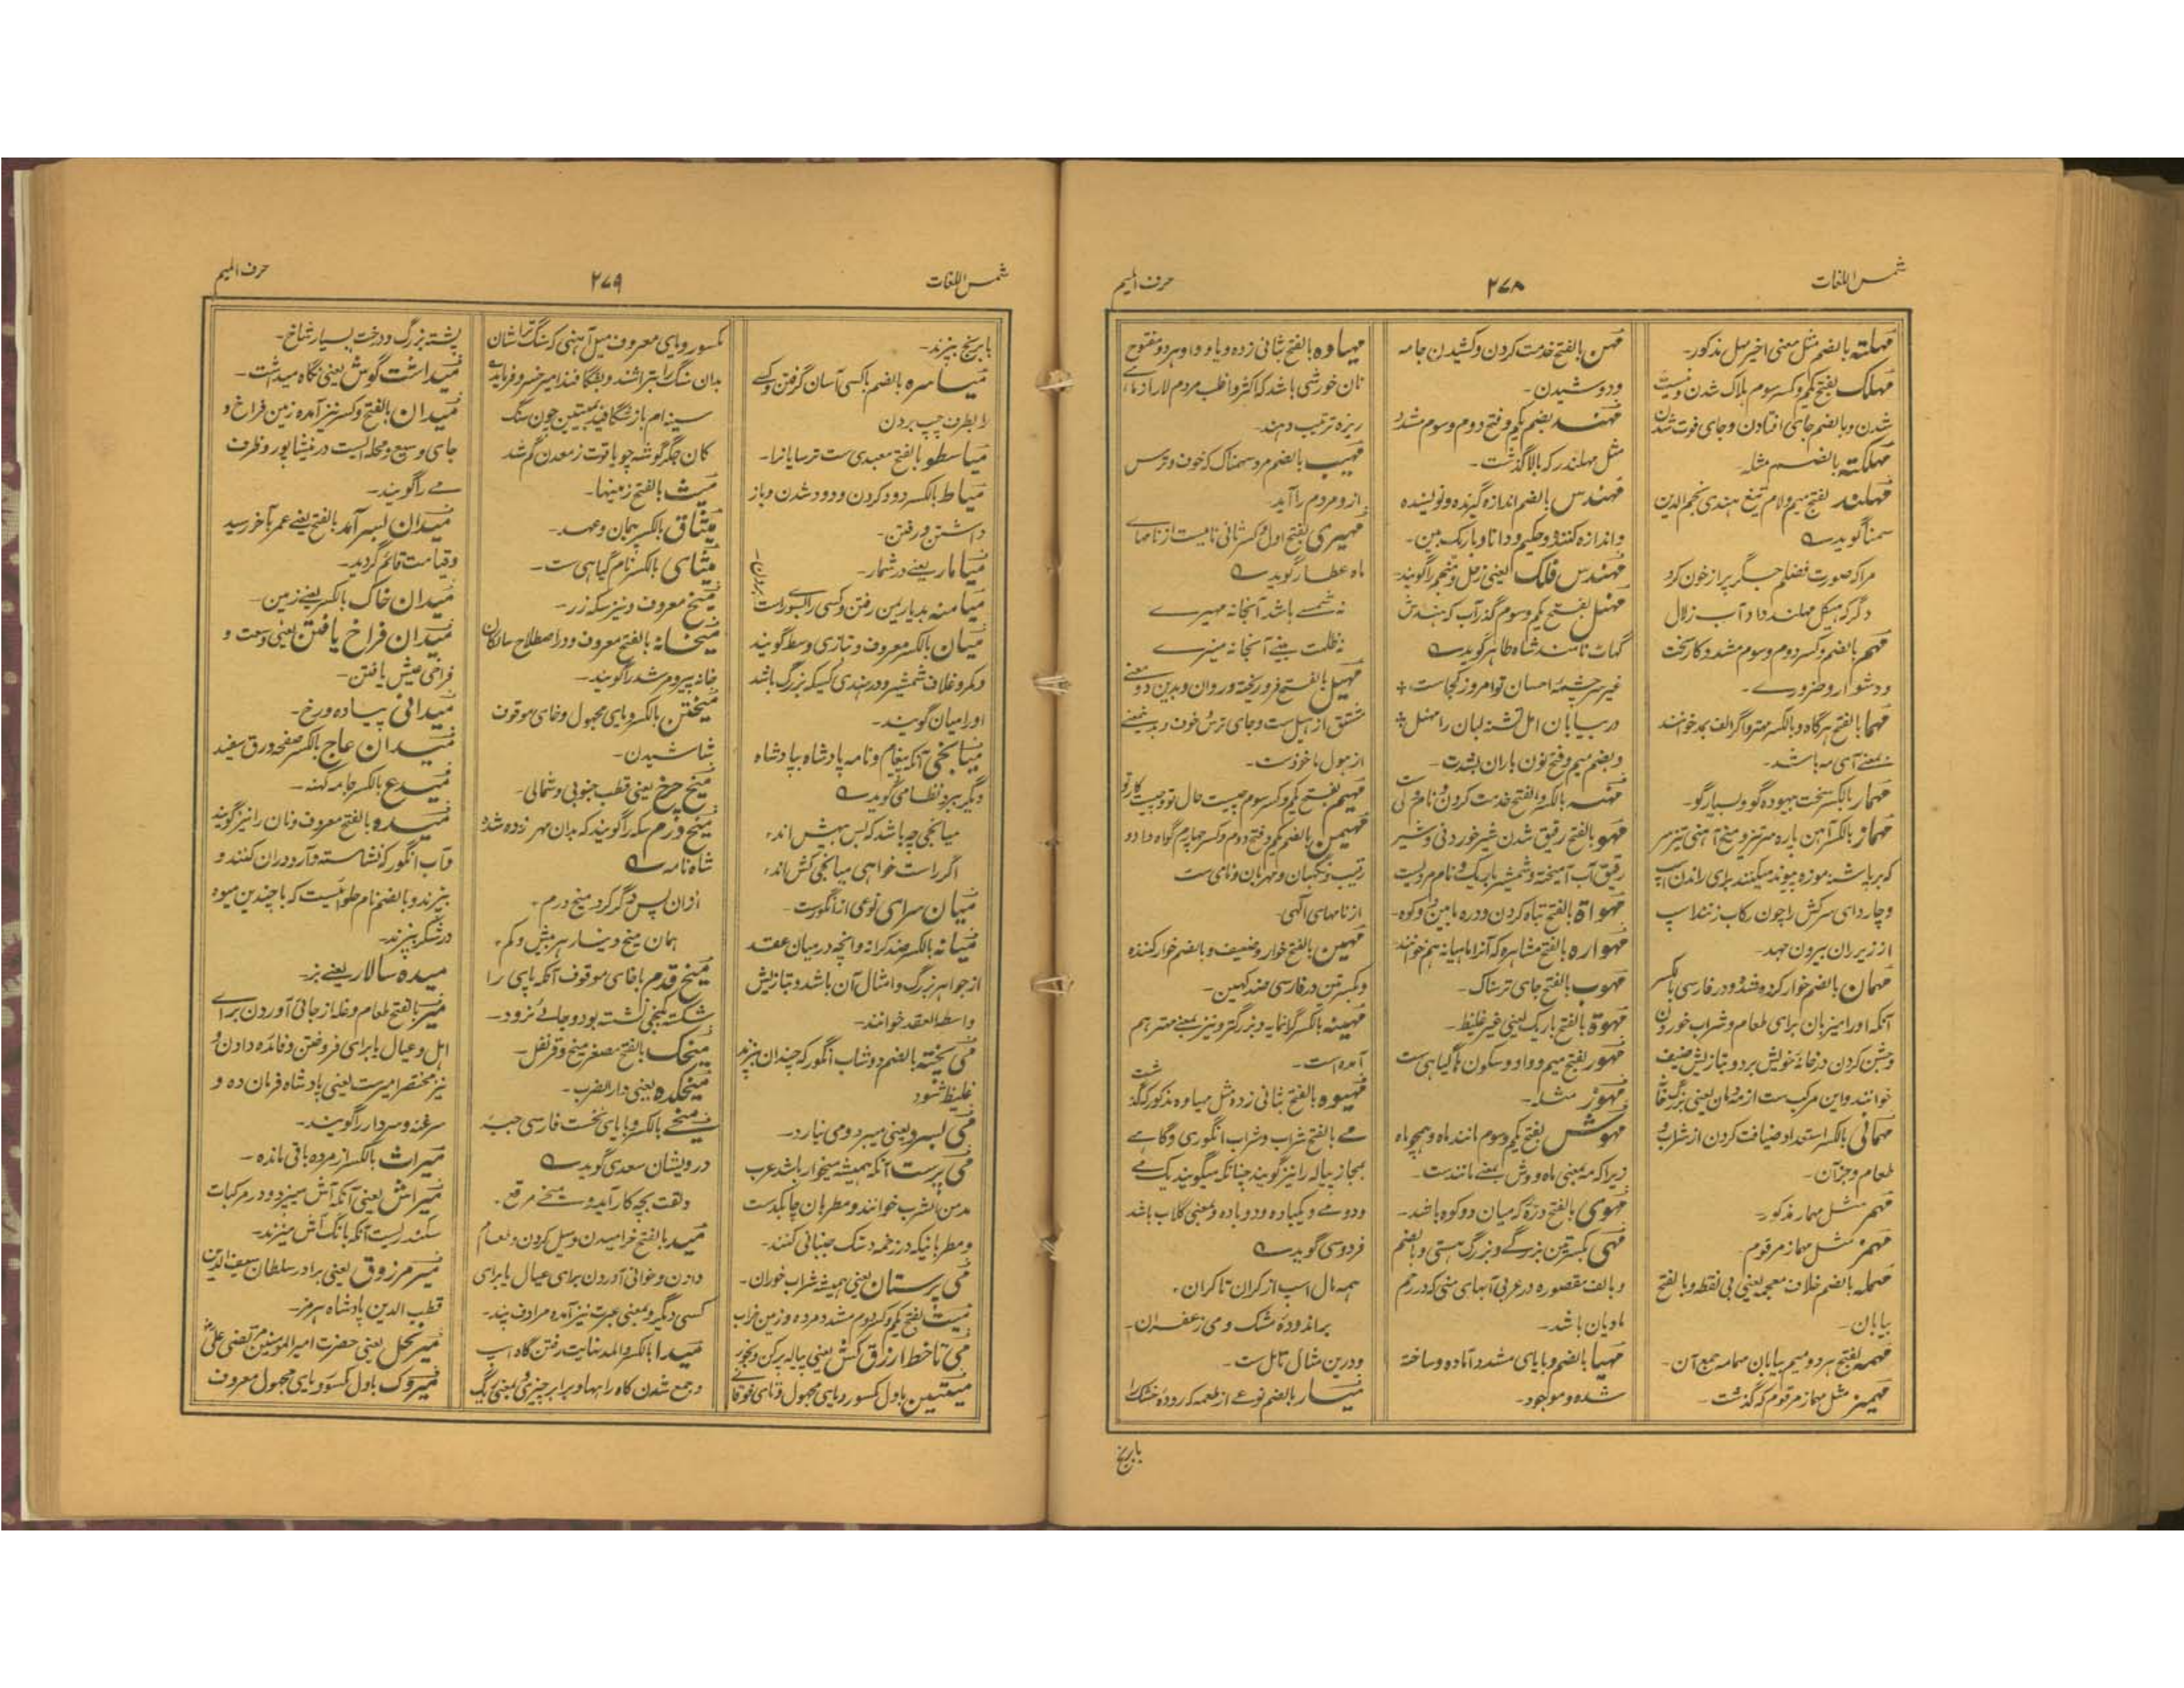 شمس اللغات
۲۷۸
حرف المیم
مہلتہ بالضم مثل معنی اخیر مہل مذکور-
مہلک بفتح یکم و کسر سوم ہلاک شدن و نیست
شدن و بالضم جای افتادن و جای فوت شدن
مہلکتہ بالضم مثلہ-
مہلند بفتح میم و لام تیغ ہندی نجم الدین
سمنا گوید
مرا کہ صورت فضلم جگر پر از خون کرد
دگر کہ ہیکل مہلند داد آب زلال
مہم بالضم و کسر دوم و سوم مشدد کار سخت
و دشوار و ضروری-
مہما بالفتح ہرگاہ و بالکسر مہتر و اگر الف بمد خوانند
بمعنے آی مہ باشد-
مہمار بالکسر سخت بیہودہ گو و بسیار گو-
مہماز بالکسر آہن پارہ سر تیز و میخ آہنی تیز سر
کہ بر پاشنہ موزہ پیوند میکنند برای راندن اسپ
و چاروای سرکش را چون رکاب زنند اسپ
از زیر ران بیرون جہد-
مہمان بالضم خوار کردہ شدہ و در فارسی بالکسر
آنکہ او را میزبان برای طعام و شراب خوردن
و جشن کردن در خانہ خویش برد و بتازیش ضیف
خوانند و این مرکب ست از مہ و مان یعنی بزرگ خانہ
مہمانی بالکسر استعداد ضیافت کردن از شراب و
طعام و جز آن-
مہمر مثل مہمار مذکور-
مہمز مثل مہماز مرقوم-
مہملہ بالضم خلاف معجمہ یعنی بی نقطہ و بالفتح
بیابان-
مہمہ بفتح ہر دو میم بیابان مہامہ جمع آن-
مہمیز مثل مہماز مرقوم کہ گذشت-
مہن بالفتح خدمت کردن و کشیدن جامہ
و دوشیدن-
مہند بضم یکم و فتح دوم و سوم مشدد
مثل مہلند رکہ بالا گذشت-
مہندس بالضم اندازہ گیرندہ و نویسندہ
و اندازہ کنندہ و حکیم و دانا و باریک بین-
مہندس فلک یعنی زحل و منجم را گویند-
مہنل بفتح یکم و سوم گذر آب کہ بہندش
گہات نامند شاہ طاہر گوید
غیر سرچشمۂ احسان تو امروز کجاست
در بیابان امل تشنہ لبان را مہنل
و بضم میم و فتح نون باران بشدت-
مہنہ بالکسر و الفتح خدمت کردن و نام
مہو بالفتح رقیق شدن شیر خوردنی و شیر
رقیق آب آمیختہ و شمشیر باریک و نام مردیست
مہواۃ بالفتح تباہ کردن و درہ مابین دو کوہ-
مہوارہ بالفتح مشاہرہ کہ آنرا ماہیانہ ہم خوانند
مہوب بالفتح جای ترسناک-
مہوۃ بالفتح باریک یعنی غیر غلیظ-
مہور بفتح میم و واو و سکون ہا گیاہی ست
مہوز مثلہ-
مہوش بفتح یکم و سوم مانند ماہ و ہمچو ماہ
زیرا کہ مہ بمعنی ماہ و وش بمعنے مانندست-
مہوی بالفتح درّۂ کہ میان دو کوہ باشد-
مہی بکسرتین بزرگے و بزرگ ہستی و بالضم
و بالف مقصورہ در عربی آبہای منی کہ در رحم
مادیان باشد-
مہیا بالضم و بایای مشدد آمادہ و ساختہ
شدہ و موجود-
مہیاوہ بالفتح ثانی زدہ و یا و واو ہر دو مفتوح
نان خورشی باشد کہ اکثر و اغلب مردم لار از ماہی
ریزہ ترتیب دہند-
مہیب بالضم مرد سہمناک کہ خوف و ترس
از و مردم را آید-
مہیری بفتح اول و کسر ثانی نامیست از نامہای
ماہ عطار گوید
نہ شمسے باشد آنجا نہ مہیرے
نہ ظلمت بینے آنجا نہ منیرے
مہیل بالفتح فرو ریختہ و روان و بدین دو معنے
مشتق از ہیل ست و جای ترس و خوف و بدین معنے
از ہول ماخوذست-
مہیم بفتح یکم و کسر سوم چیست حال تو و چیست کار تو
مہیمن بالضم یکم و فتح دوم و کسر چہارم گواہ دادو
رقیب و نگہبان و مہربان و نامی ست
از نامہای الٰہی-
مہین بالفتح خوار و ضعیف و بالضم خوار کنندہ
و بکسرتین در فارسی ضد کہین-
مہینہ بالکسر گرانمایہ و بزرگتر و نیز بمعنے مہتر ہم
آمدہ است-
مہیوہ بالفتح ثانی زدہ مثل مہیاوہ مذکور کہ گذشت
مے بالفتح شراب و شراب انگوری و گاہے
بمجاز پیالہ را نیز گویند چنانکہ میگویند یک مے
و دو مے و یکبادہ و دو بادہ و بمعنی گلاب باشد
فردوسی گوید
ہمہ یال اسپ از کران تا کران
براندودہ مشک و می زعفران-
و درین مثال تامل ست-
میار بالضم نوعے از طعمہ کہ رودہ خشک را
با برنج
شمس اللغات
۲۷۹
حرف المیم
با برنج پزند-
میاسرہ بالضم با کسی آسان گرفتن و کسے
را بطرف چپ بردن
میاسطو بالفتح معبدی ست ترسایانرا-
میاط بالکسر دور کردن و دور شدن و باز
داشتن و رفتن-
میامار یعنے در شمار-
میامنہ بدیار یمن رفتن و کسی را بسوے راست
بردن-
میان بالکسر معروف و بتازی وسط گویند
و کمر و غلاف شمشیر و در ہندی کسیکہ بزرگ باشد
او را میان گویند-
میانجی آنکہ پیغام و نامہ پادشاہ بپادشاہ
دیگر برد نظامی گوید
میانجی چہ باشد کہ بس بیہش اند
اگر راست خواہی میانجی کش اند
میان سرای نوعی از انگورست-
میانہ بالکسر ضد کرانہ و آنچہ در میان عقد
از جواہر بزرگ و امثال آن باشد و بتازیش
واسطۃ العقد خوانند-
می پختہ بالضم دوشاب انگور کہ چندان پزند
غلیظ شود
می بسرد یعنی میبرد و می نیارد-
می پرست آنکہ ہمیشہ میخوار باشد عرب
مدمن الشرب خوانند و مطربان چابکدست
و مطربانیکہ در زخمہ دستک جنبانی کنند-
می پرستان یعنی ہمیشہ شراب خوران-
میت بفتح یکم و کسر دوم مشدد مردہ و زمین خراب
می تا خط ازرق کش یعنی پیالہ پر کن و بخور
میتین باول مکسور و یای مجہول و تای فوقانے
مکسور و یای معروف میل آہنی کہ سنگ تراشان
بدان سنگ را بتراشند و بشگافند امیر خسرو فرماید
سینہ ام باز شگافید بمیتین چون سنگ
کان جگر گوشہ چو یاقوت ز معدن گم شد
میث بالفتح زمینہا-
میثاق بالکسر پیمان و عہد-
میثای بالکسر نام گیاہی ست-
میخ معروف و نیز سکہ زر-
میخانہ بالفتح معروف و در اصطلاح سالکان
خانہ پیر و مرشد را گویند-
میختن بالکسر و بایی مجہول و خای موقوف
شاشیدن-
میخ چرخ یعنی قطب جنوبی و شمالی-
میخ درم سکہ را گویند کہ بدان مہر زدہ شد
شاہ نامہ
ازان پس دگر کرد میخ درم
ہمان میخ دینار ہر بیش و کم
میخ قدم با خای موقوف آنکہ پای را
شکستہ کنجی نشستہ بود و جائے نرود-
میخک بالفتح مصغر میخ و قرنفل-
میخکدہ یعنی دار الضرب-
میخے بالکسر و بایای نخست فارسی جبہ
درویشان سعدی گوید
دلقت بچہ کار آید و میخے مرقع
مید بالفتح خرامیدن و میل کردن و طعام
دادن و خوانی آوردن برای عیال یا برای
کسی دیگر و بمعنی عبرت نیز آمدہ مرادف پند-
میدا بالکسر و المد نہایت رفتن گاہ اسپ
و جمع شدن گاہ راہہا و برابر چیزی و بمعنی یک
پشتہ بزرگ و درخت بسیار شاخ-
میداشت گوش یعنی نگاہ میداشت-
میدان بالفتح و کسر نیز آمدہ زمین فراخ و
جای وسیع و محلہ الیست در نیشاپور و ظرف
مے را گویند-
میدان بسر آمد بالفتح یعنے عمر بآخر رسید
و قیامت قائم گردید-
میدان خاک بالکسر یعنے زمین-
میدان فراخ یافتن یعنی وسعت و
فراخی عیش یافتن-
میدانی پیادہ و رخ-
میدان عاج بالکسر صفحہ ورق سفید
میدع بالکسر جامہ کہنہ-
میدہ بالفتح معروف و نان را نیز گویند
و آب انگور کہ نشاستہ و آرد دران کنند و
بپزند و بالضم نام حلوائیست کہ با چندین میوہ
در شکر پزند-
میدہ سالار یعنے بز-
میر بالفتح طعام و غلہ از جائے آوردن برای
اہل و عیال یا برای فروختن و فائدہ دادن و
نیز مختصر امیرست یعنی پادشاہ فرمان دہ و
سرغنہ و سردار را گویند-
میراث بالکسر از مردہ باقی ماندہ-
میر آتش یعنی آنکہ آتش میپزد و در مرکبات
سکندریست آنکہ بانگ آش میزند-
میر مرزوق یعنی برادر سلطان سیف الدین
قطب الدین پادشاہ ہرمز-
میر نحل یعنی حضرت امیر المومنین مرتضی علی
میروک باول مکسور و یای مجہول معروف